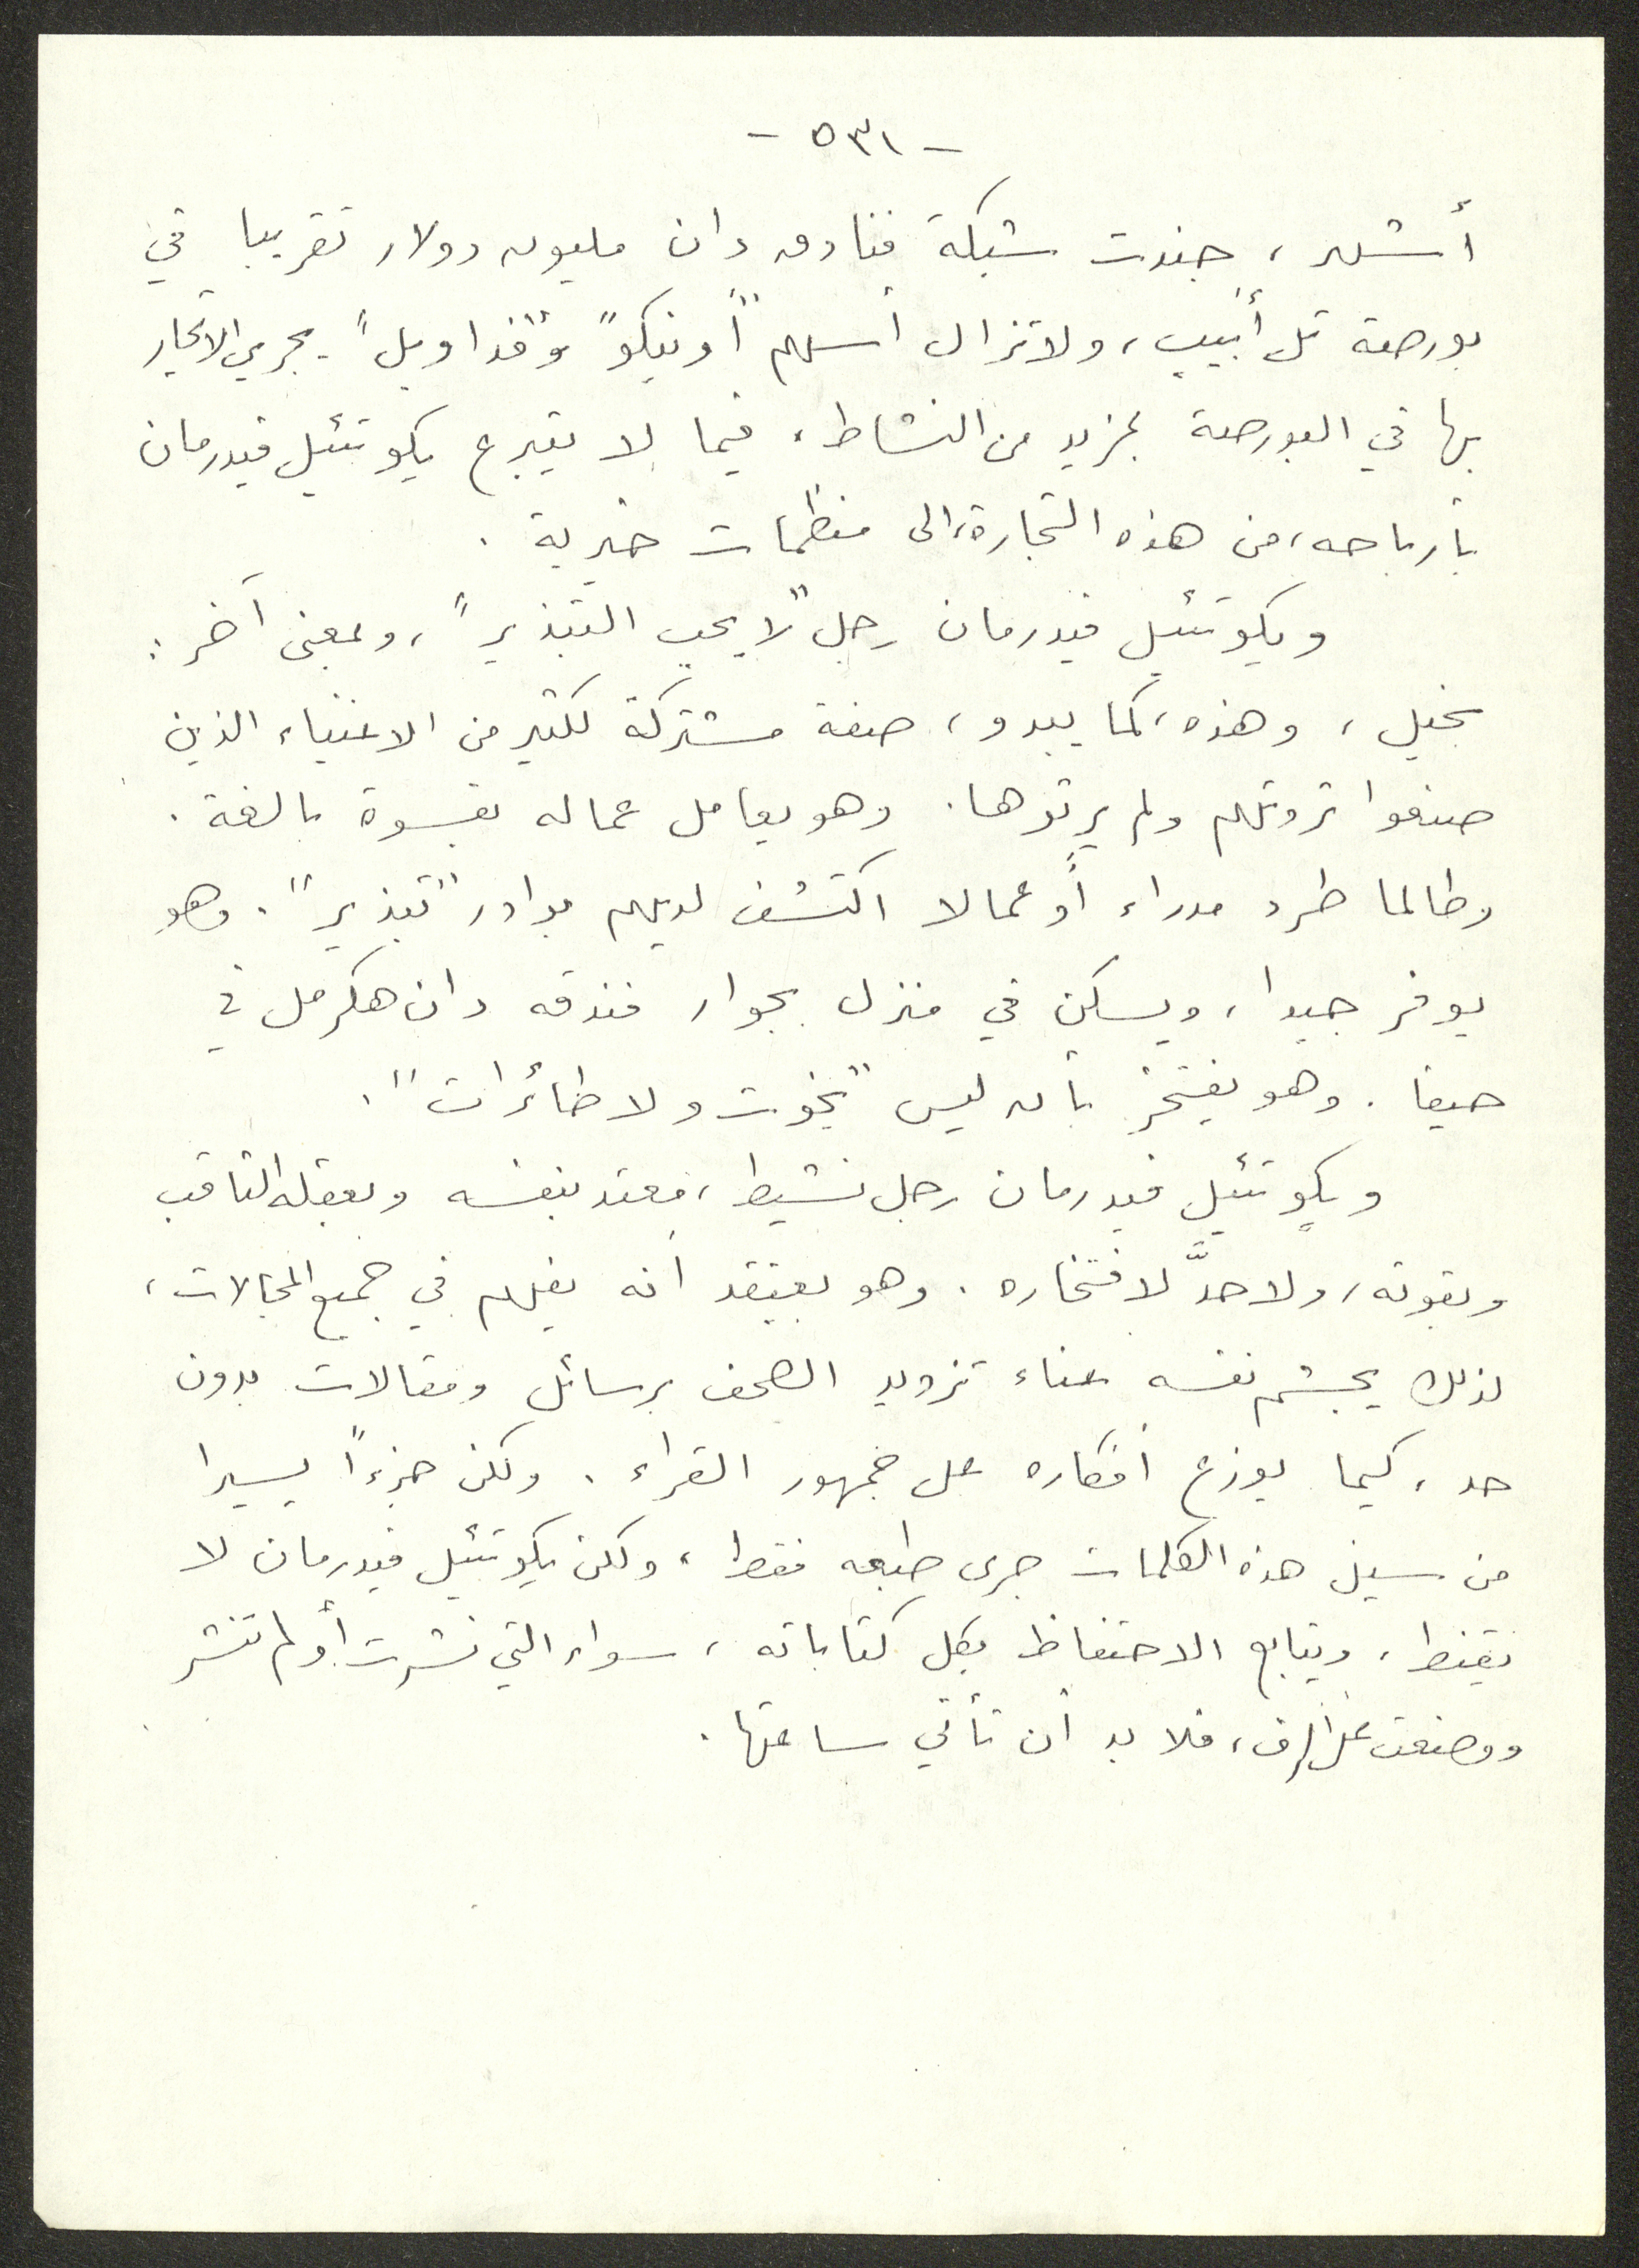 - ٥٣١ -
أشهر، جندت شبكة فنادق دان مليون دولار تقريبا في
بورصة تل أبيب، ولا تزال أسهم "أونيكو" و"فداويل" يجري الاتجار
بها في البورصة بمزيد من النشاط، فيما لا يتبرع يكوتئيل فيدرمان
بأرباحه، من هذه التجارة، الى منظمات خيرية.
ويكوتئيل فيدرمان رجل "لا يحب التبذير"، وبمعنى آخر:
بخيل، وهذه، كما يبدو، صفة مشتركة لكثير من الاغنياء الذين
صنعوا ثروتهم ولم يرثوها. وهو يعامل عماله بقسوة بالغة.
وطالما طرد مدراء أو عمالا اكتشف لديهم بوادر "تبذير". وهو
يوفر جيدا، ويسكن في منزل بجوار فندقه دان هكرمل في
حيفا. وهو يفتخر بأنه ليس "يخوت ولا طائرات".
ويكوتئيل فيدرمان رجل نشيط، معتد بنفسه وبعقله الثاقب
وبقوته، ولا حدَّ لافتخاره. وهو يعتقد أنه يفهم في جميع المجالات،
لذلك يجشم نفسه عناء تزويد الصحف برسائل ومقالات بدون
حد، كيما يوزع أفكاره على جمهور القراء. ولكن جزءاً يسيرا
من سيل هذه الكلمات جرى طبعه فقط، ولكن يكوتئيل فيدرمان لا
يقنط، ويتابع الاحتفاظ بكل كتاباته، سواء التي نشرت أو لم تنشر
ووضعت على الرف، فلا بد أن تأتي ساعتها.